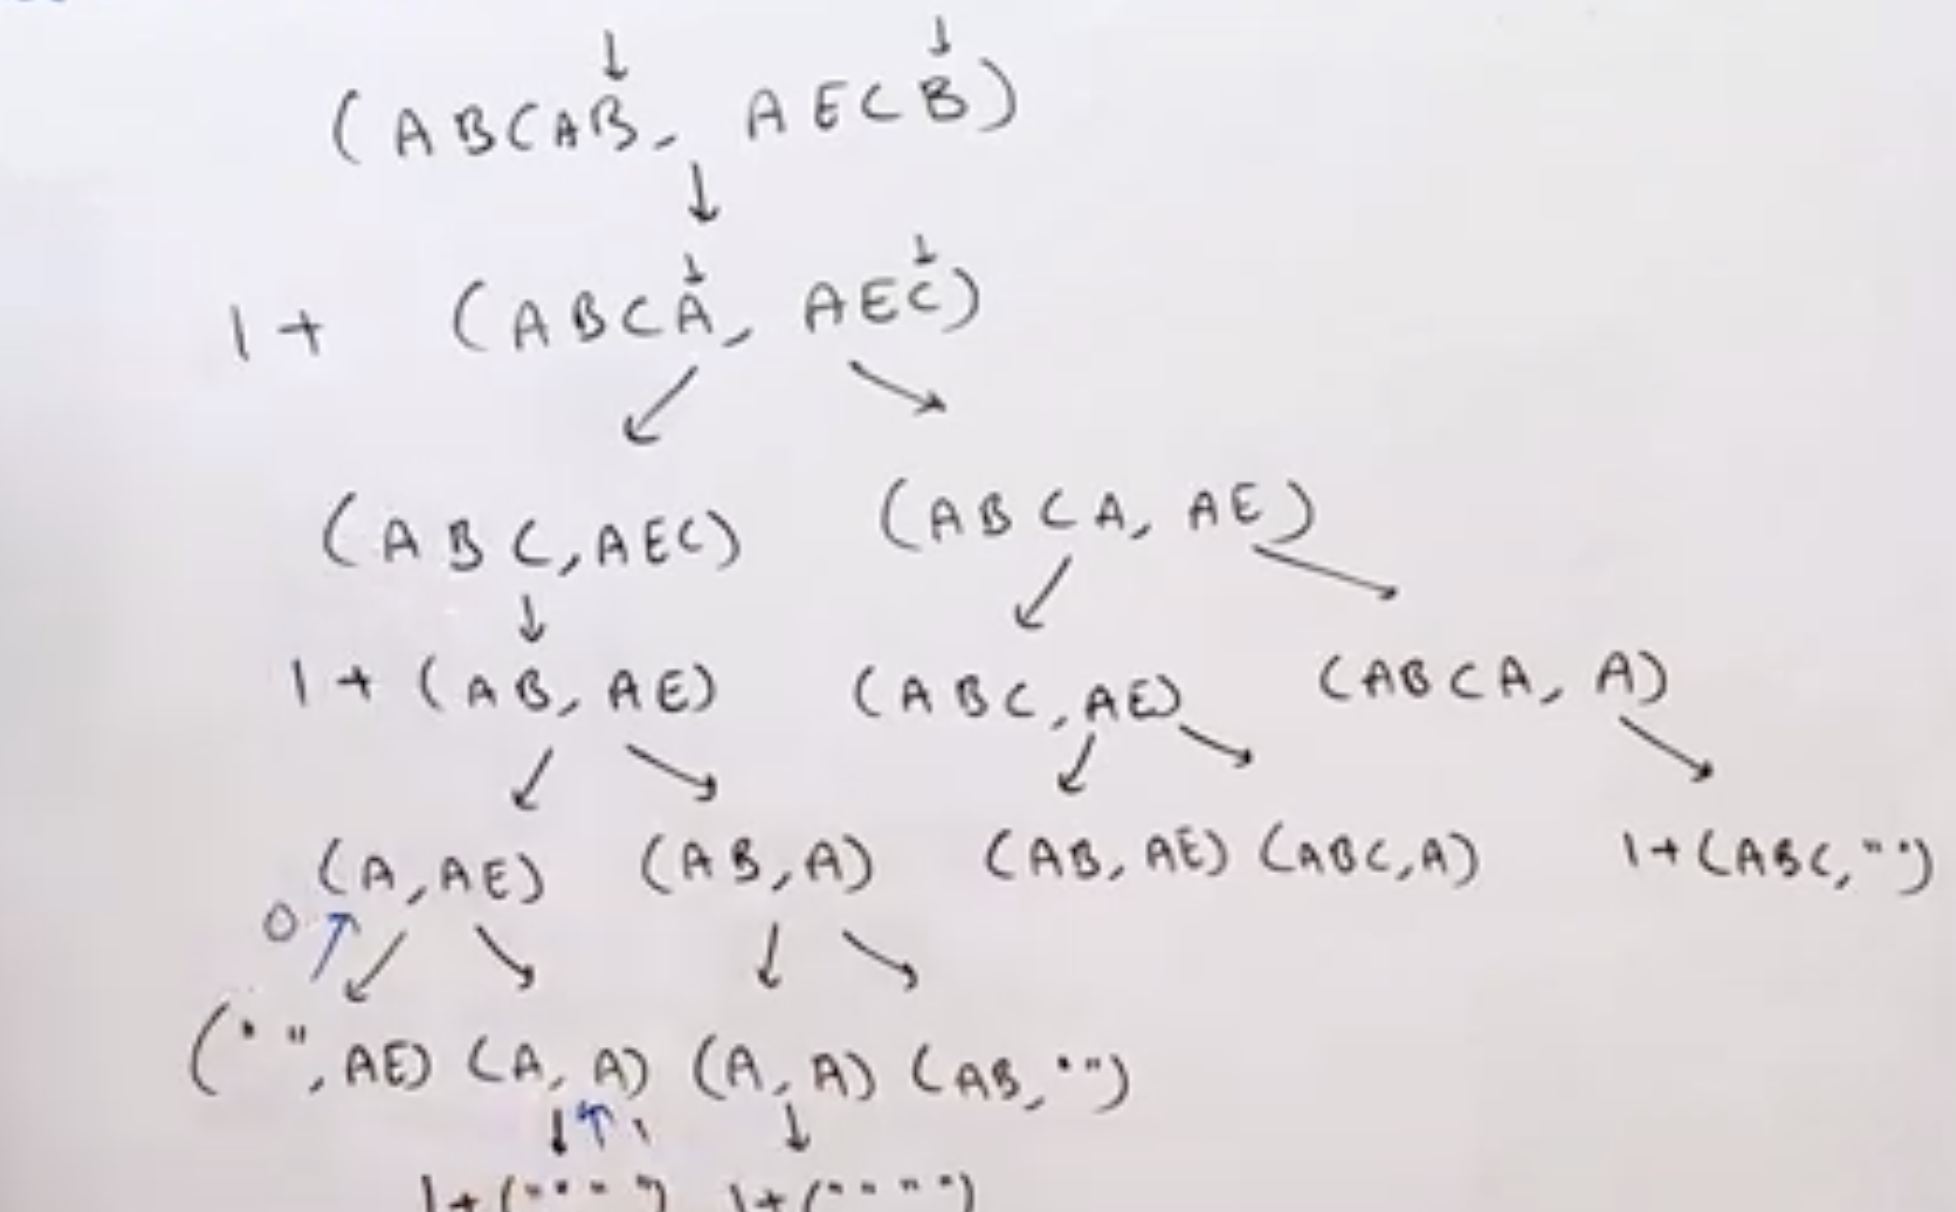 (ABCAB, AECB)
1+ (ABCA, AEC)
(ABC,AEC) (ABCA, AE)
1+ (AB, AE) (ABC,AE) (ABCA, A)
(A,AE) (AB,A) (AB, AE) (ABC,A) 1+(ABC,"")
0
("",AE) (A,A) (A,A) (AB,"")
1
1+("" "") 1+("" "")